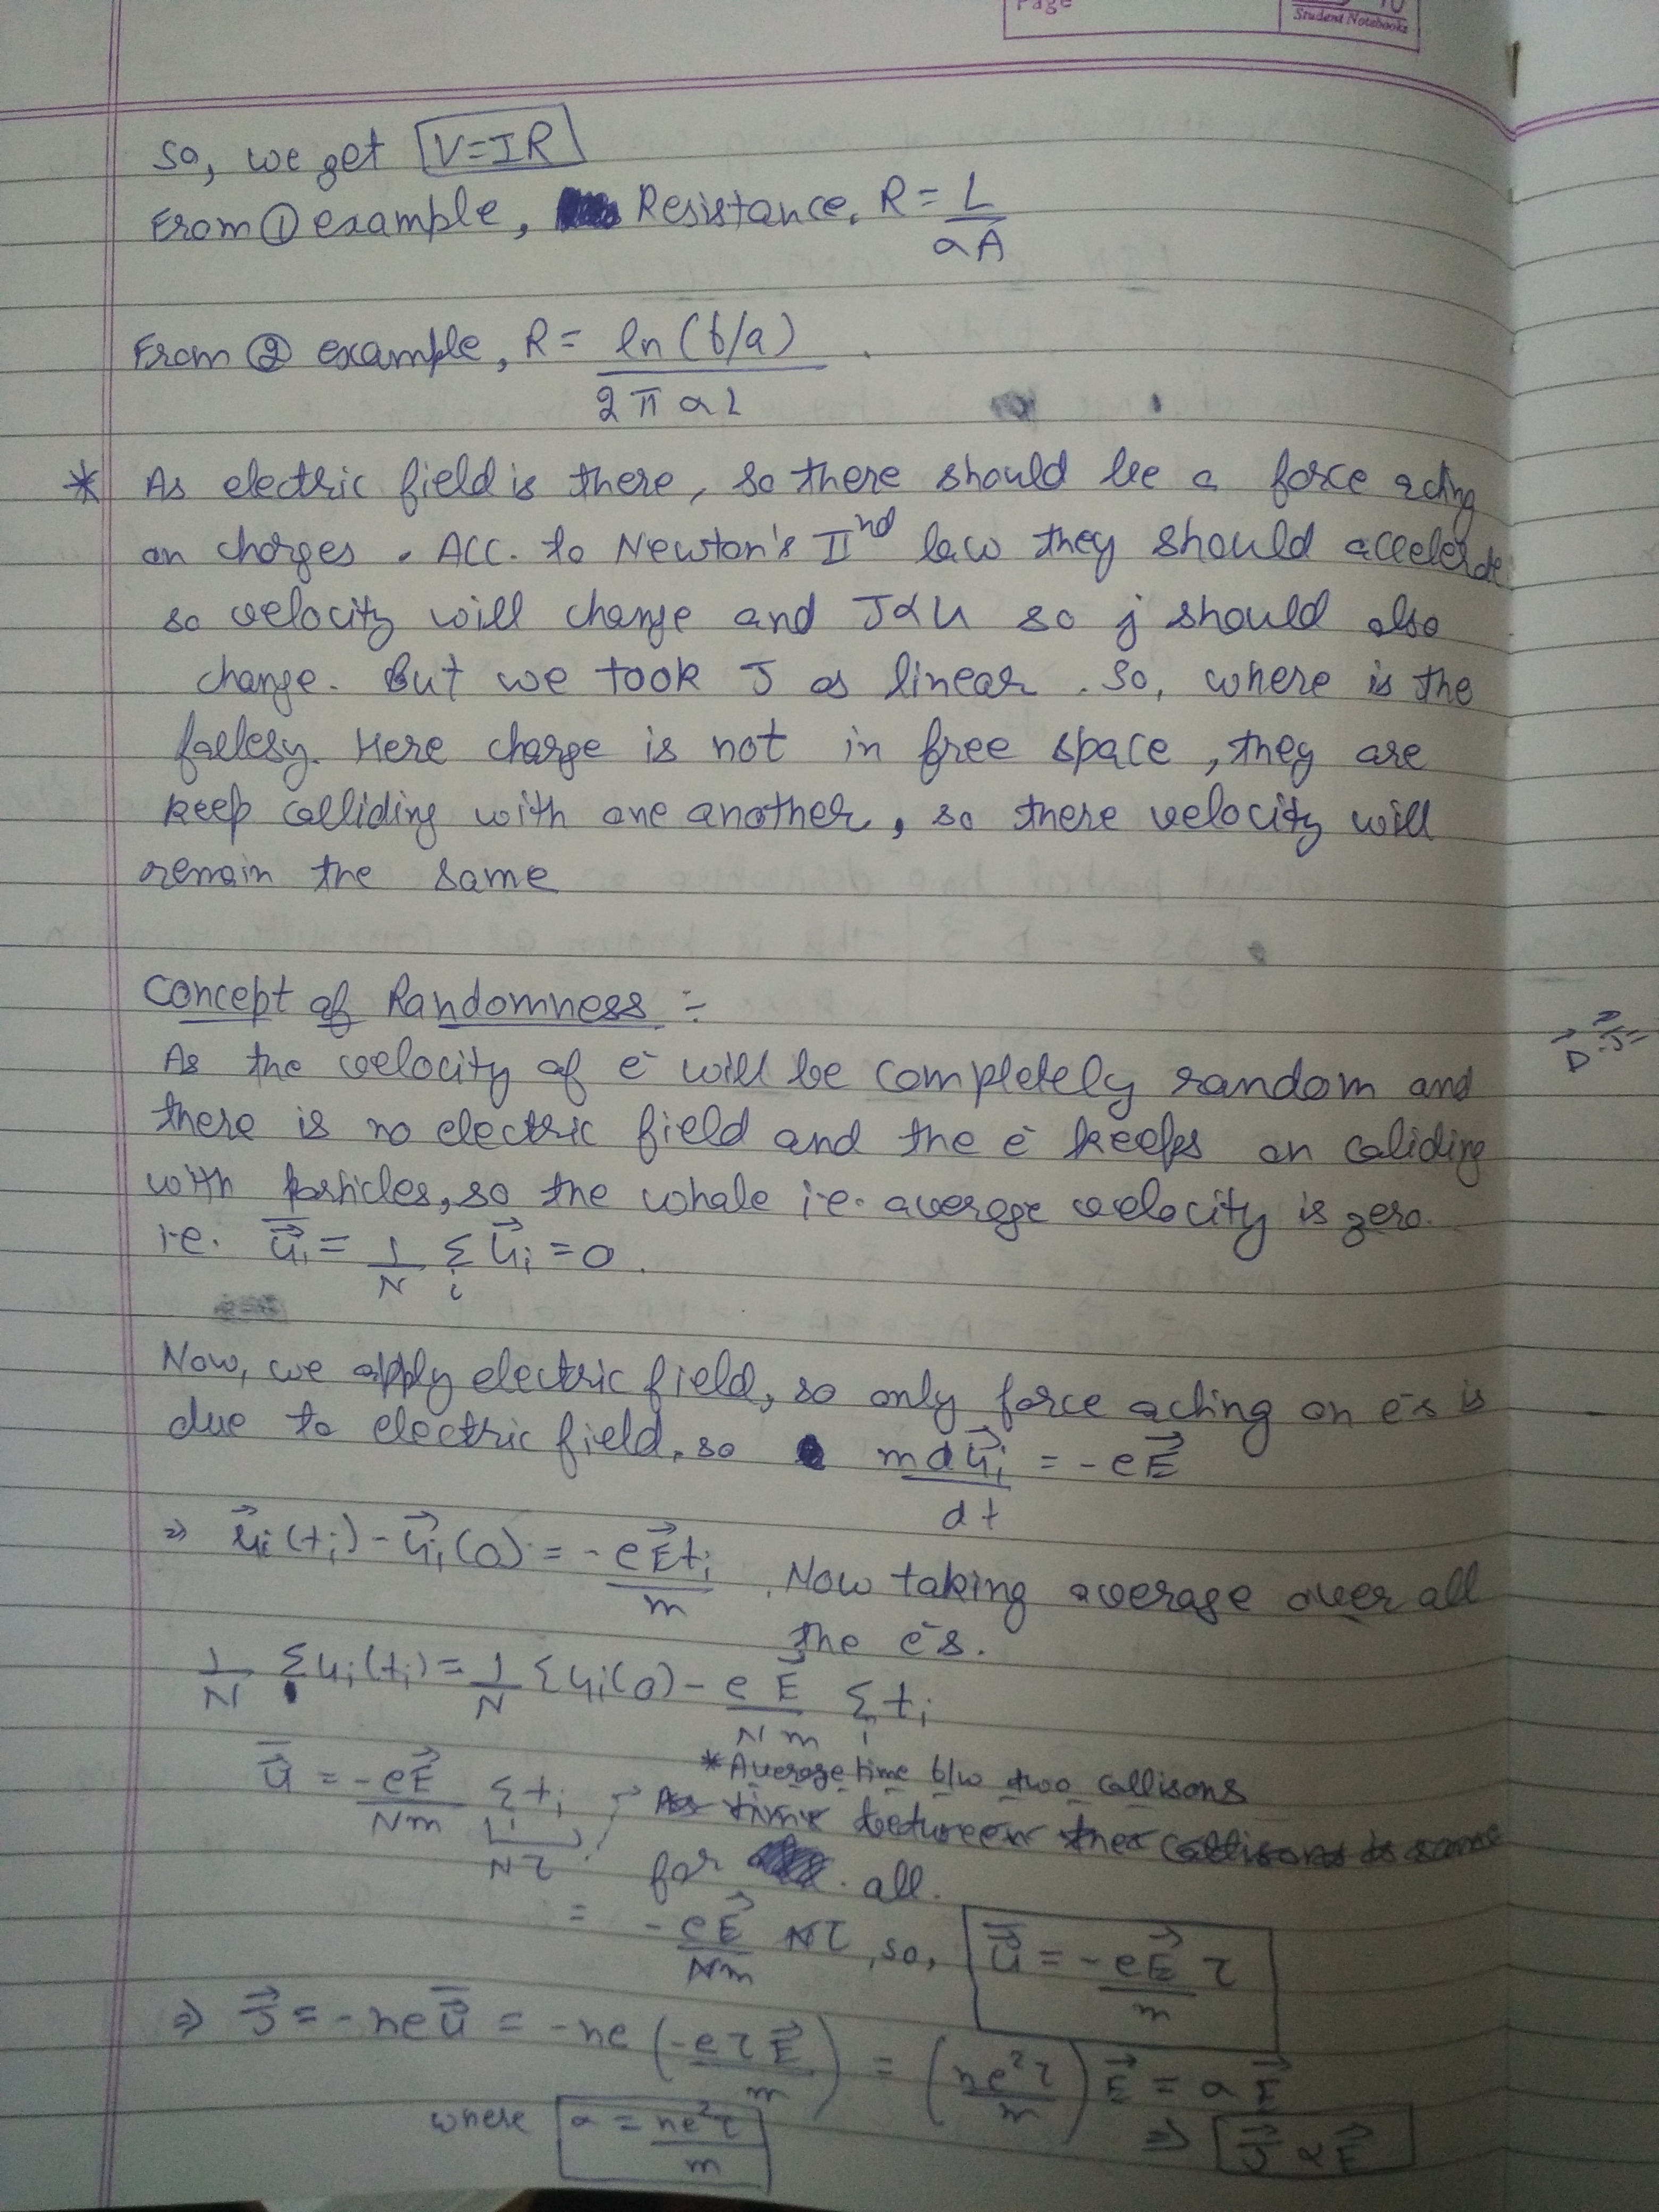 Page
Student Notebooks
So, we get V=IR
From ① example, Resistance, R = L/σA
From ② example, R = ln(b/a)/2πσL
* As electric field is there, so there should be a force acting
on charges. Acc. to Newton's IInd law they should accelerate
so velocity will change and J∝u so j should also
change. But we took J as linear. So, where is the
fallesy. Here charge is not in free space, they are
keep colliding with one another, so there velocity will
remain the same
Concept of Randomness :-
As the velocity of e⁻ will be completely random and
there is no electric field and the e⁻ keeps on coliding
with particles, so the whole i.e. average velocity is zero.
i.e. ū⃗ᵢ = 1/N Σᵢ u⃗ᵢ = 0.
Now, we apply electric field, so only force acting on e⁻s is
due to electric field, so m du⃗ᵢ/dt = -eE⃗
⇒ u⃗ᵢ(tᵢ) - u⃗ᵢ(0) = -eE⃗tᵢ/m. Now taking average over all
the e⁻s.
1/N Σuᵢ(tᵢ) = 1/N Σuᵢ(0) - eE⃗/Nm Σᵢ tᵢ
* Average time b/w two collisons
ū⃗ = -eE⃗/Nm Σtᵢ → As time between the collisons is same
Nτ for all.
= -eE⃗/Nm Nτ, so, ū⃗ = -eE⃗/m τ
⇒ J⃗ = -neū⃗ = -ne(-eτE⃗/m) = (ne²τ/m)E⃗ = σE⃗
where σ = ne²τ/m ⇒ J⃗ ∝ E⃗